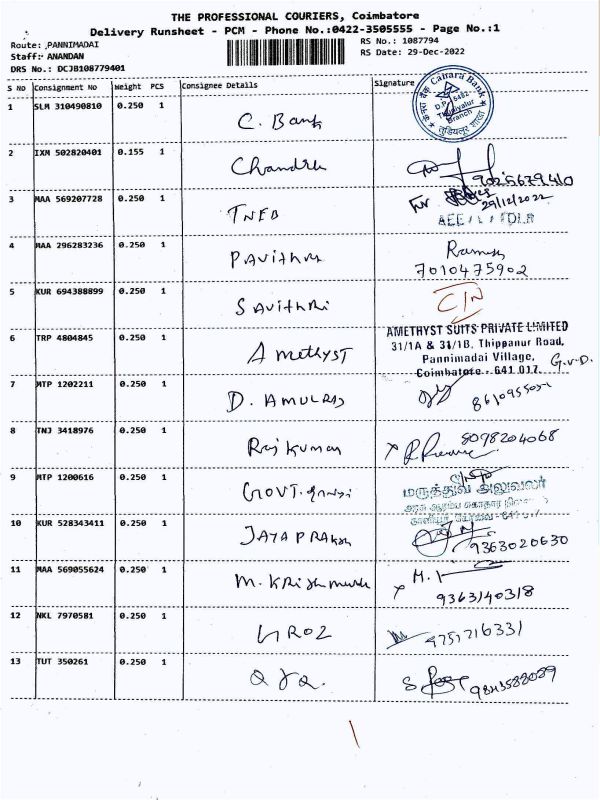 THE PROFESSIONAL COURIERS, Coimbatore
Delivery Runsheet - PCM - Phone No.:0422-3505555 - Page No.:1
Route: ,PANNIMADAI
Staff: ANANDAN
DRS No.: DCJB108779401
RS No.: 1087794
RS Date: 29-Dec-2022
S NO Consignment No Weight PCS Consignee Details Signature
1 SLM 310490810 0.250 1 C. Bank
Canara Bank
Branch
2 IXM 502820401 0.155 1 Chandra
9025679410
3 MAA 569207728 0.250 1 TNEB
For
29/12/2022
AEE
4 MAA 296283236 0.250 1 Pavithra Ramesh
7010475902
5 KUR 694388899 0.250 1 Savithri C/N
6 TRP 4804845 0.250 1 Amethyst
AMETHYST SUITS PRIVATE LIMITED
31/1A & 31/1B, Thippanur Road,
Pannimadai Village,
Coimbatore - 641 017.
G.V.D.
7 MTP 1202211 0.250 1 D. AMULRAJ
8 TNJ 3418976 0.250 1 Rajkumar 8098204068
9 MTP 1200616 0.250 1 GOVT.
மருத்துவ அலுவலர்
10 KUR 528343411 0.250 1 JAYAPRAKASH 9363020630
11 MAA 569055624 0.250 1 M. Krishnamurthi
9363140318
12 NKL 7970581 0.250 1 9751716331
13 TUT 350261 0.250 1 9843588089